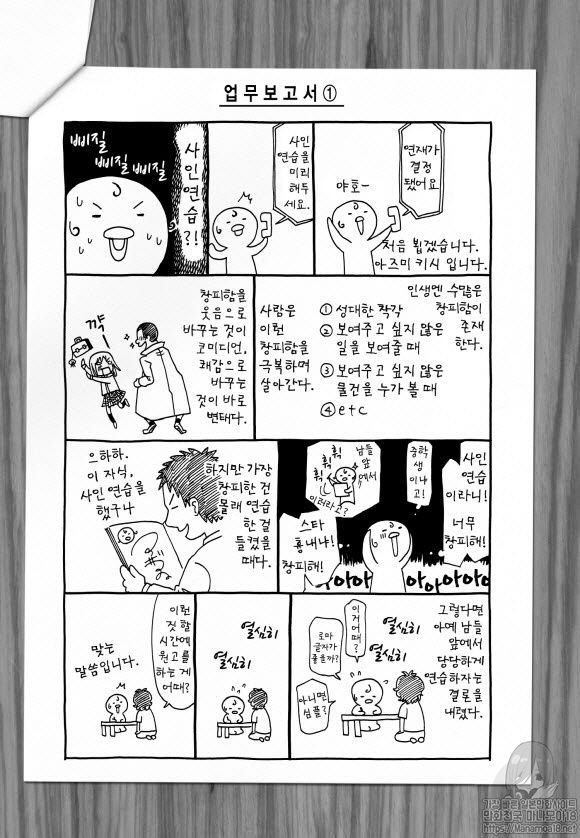 업무보고서①
연재가
결정
됐어요
야호-
처음 뵙겠습니다.
아즈미 키시 입니다.
사인
연습을
미리
해두
세요.
사인
연습?!
삐질
삐질
삐질
인생엔 수많은
창피함이
존재
한다.
① 성대한 착각
② 보여주고 싶지 않은
일을 보여줄 때
③ 보여주고 싶지 않은
물건을 누가 볼 때
④ etc
사람은
이런
창피함을
극복하며
살아간다.
창피함을
웃음으로
바꾸는 것이
코미디언,
쾌감으로
바꾸는
것이 바로
변태다.
꺅!
사인
연습
이라니!
너무
창피해!
중학
생이냐
고!
남들
앞에서
휙
휙
휙
이러라고?
스타
흉내냐!
창피해!
아아아
아아아아아
하지만 가장
창피한 건
몰래 연습
한 걸
들켰을
때다.
으하하.
이 자식,
사인 연습을
했구나
그렇다면
아예 남들
앞에서
당당하게
연습하자는
결론을
내렸다.
이거
어때?
로마
글자가
좋을까?
아니면
심플?
열심히
열심히
열심히
열심히
이런
짓 할
시간에
원고를
하는 게
어때?
맞는
말씀입니다.
가장 빠른 일본만화사이트
만화천국 마나모아18
https://Manamoa18.net